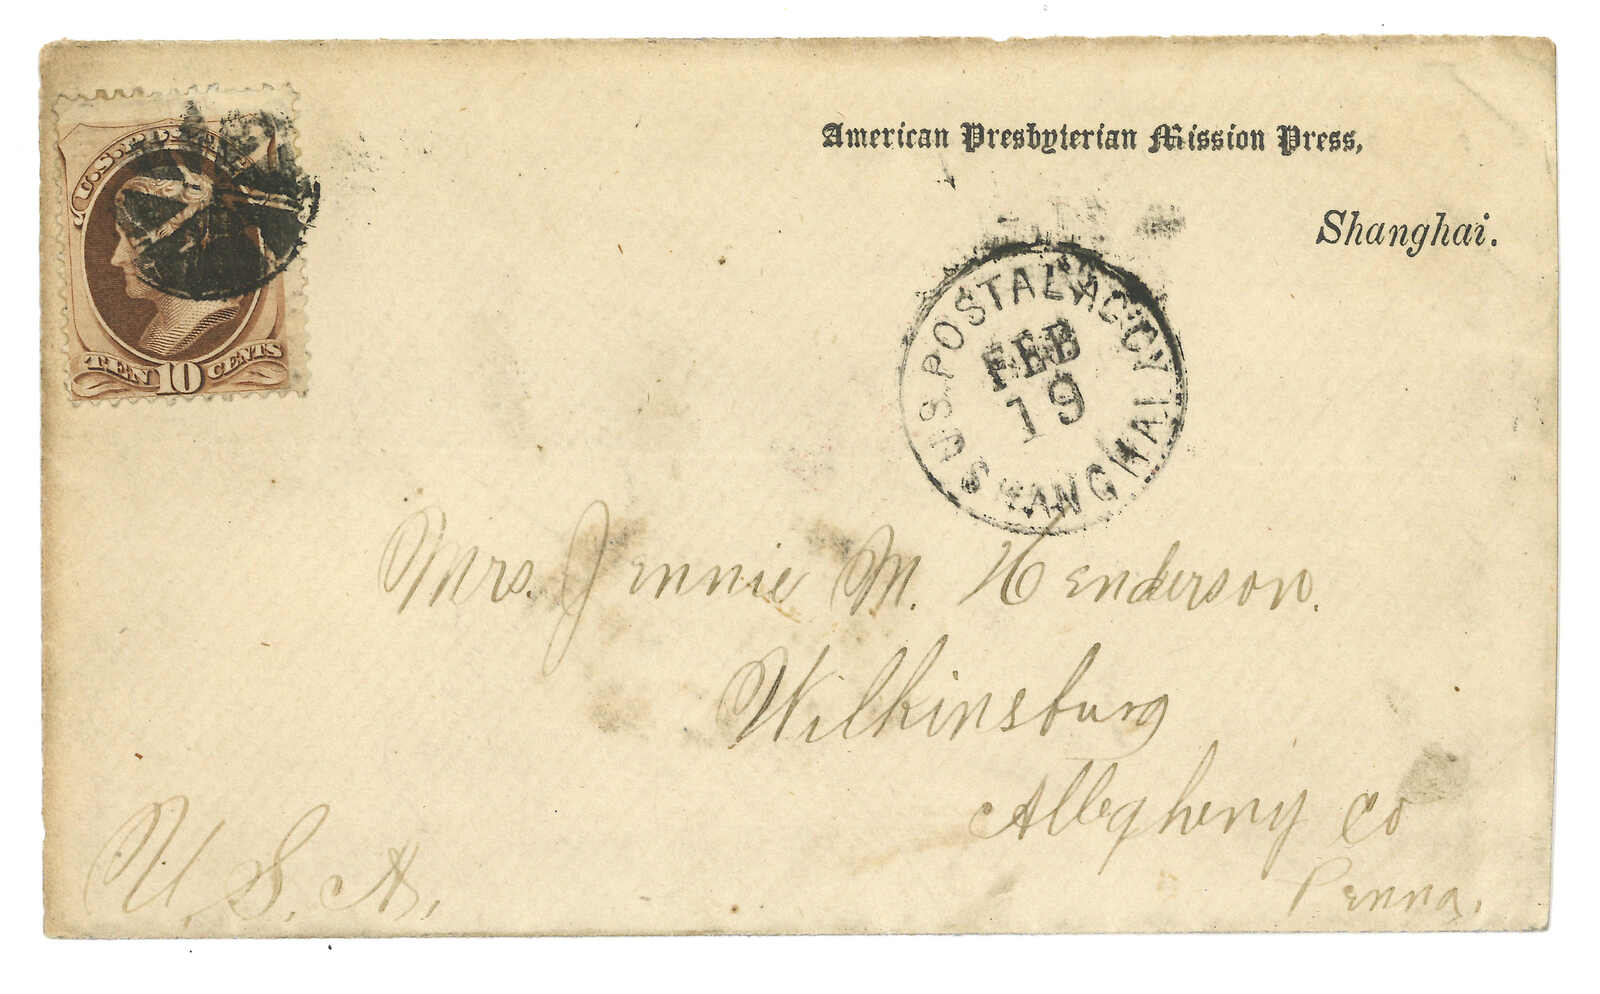 American Presbyterian Mission Press,
Shanghai.
U.S. POSTAGE
TEN 10 CENTS
U.S. POSTAL AGCY
SHANGHAI
FEB
19
Mrs. Jennie M. Henderson.
Wilkinsburg
Allegheny Co
Penna.
U.S.A.